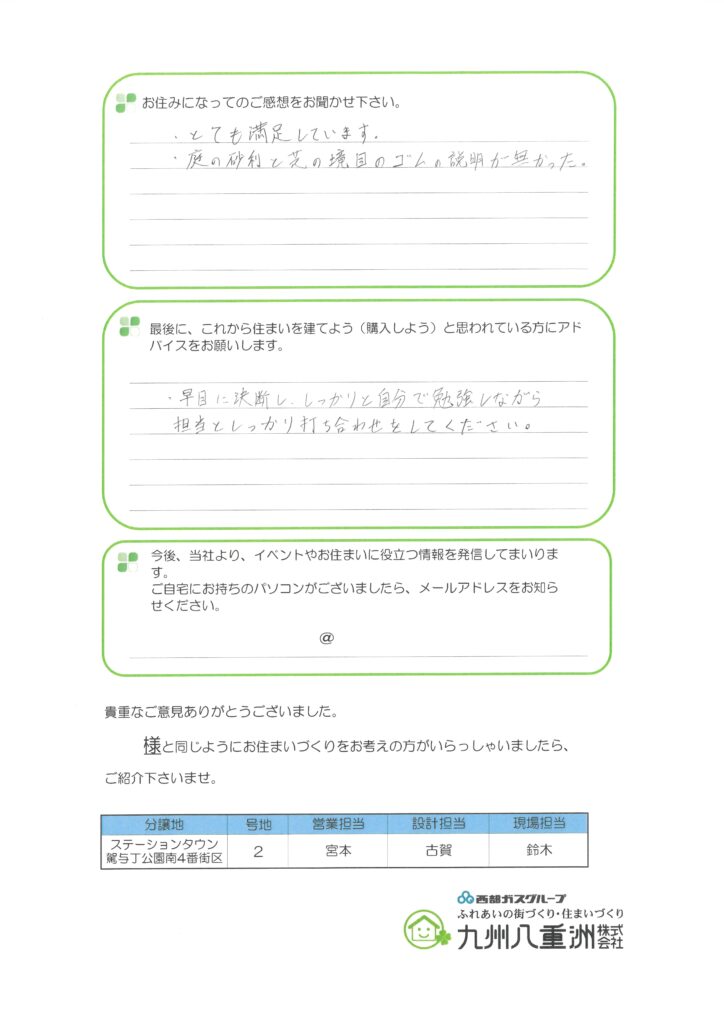 お住みになってのご感想をお聞かせ下さい。
・とても満足しています。
・庭の砂利と芝の境目のゴムの説明が無かった。
最後に、これから住まいを建てよう（購入しよう）と思われている方にアド
バイスをお願いします。
・早目に決断し、しっかりと自分で勉強しながら
担当としっかり打ち合わせをしてください。
今後、当社より、イベントやお住まいに役立つ情報を発信してまいりま
す。
ご自宅にお持ちのパソコンがございましたら、メールアドレスをお知ら
せください。
@
貴重なご意見ありがとうございました。
様と同じようにお住まいづくりをお考えの方がいらっしゃいましたら、
ご紹介下さいませ。
分譲地 号地 営業担当 設計担当 現場担当
ステーションタウン
駕与丁公園南4番街区 2 宮本 古賀 鈴木
西部ガスグループ
ふれあいの街づくり・住まいづくり
九州八重洲株式会社